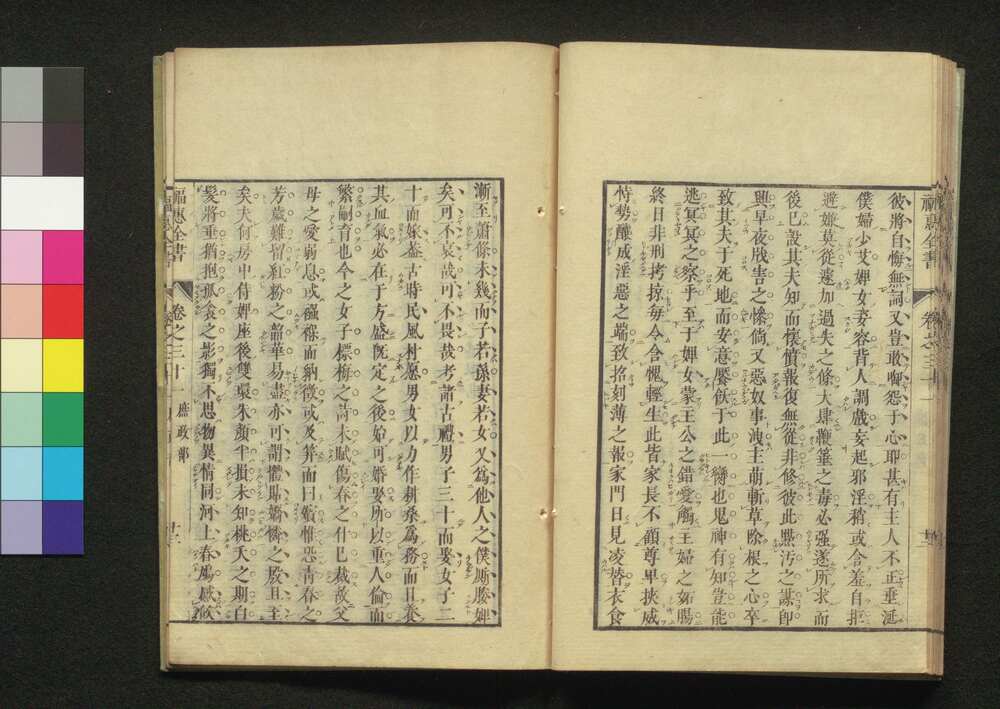 彼將自悔無詞又豈敢啣怨于心耶甚有主人不正垂涎
僕婦少艾婢女姿容背人調戲妄起邪淫稍或含羞自拒
避嫌莫從遽加過失之條大肆鞭箠之毒必强遂所求而
後已設其夫知而懷憤報復無從非修彼此點污之謀卽
興早夜戕害之慘倘又惡奴事洩主萌斬草除根之心卒
致其夫于死地而安意饜飫于此一臠也鬼神有知豈能
逃冥冥之察乎至于婢女蒙主公之錯愛觸主婦之妬腸
終日非刑拷掠毎令含愧輕生此皆家長不顧尊卑挾威
恃勢釀成淫惡之端致招刻薄之報家門日見凌替衣食
漸至蕭條未幾而子若孫妻若女又爲他人之僕厮媵婢
矣可不哀哉可不畏哉考諸古禮男子三十而娶女子二
十而嫁蓋古時民風朴愿男女以力作耕桑爲務而且養
其血氣必在于方盛旣定之後始可婚娶所以重人倫而
繁嗣育也今之女子摽梅之詩未賦傷春之什已裁故父
母之愛弱息或襁褓而納徵或及笄而曰嬪惟恐靑春之
芳歲難留紅粉之韶華易盡亦可謂體貼嬌憐之殷且至
矣夫何房中侍婢座後雙鬟朱顏半損未知桃夭之期白
髮將垂猶抱孤衾之影獨不思物異情同河上春鳬感飲
福惠全書
卷之三十
庶政部
福惠全書
卷之三十